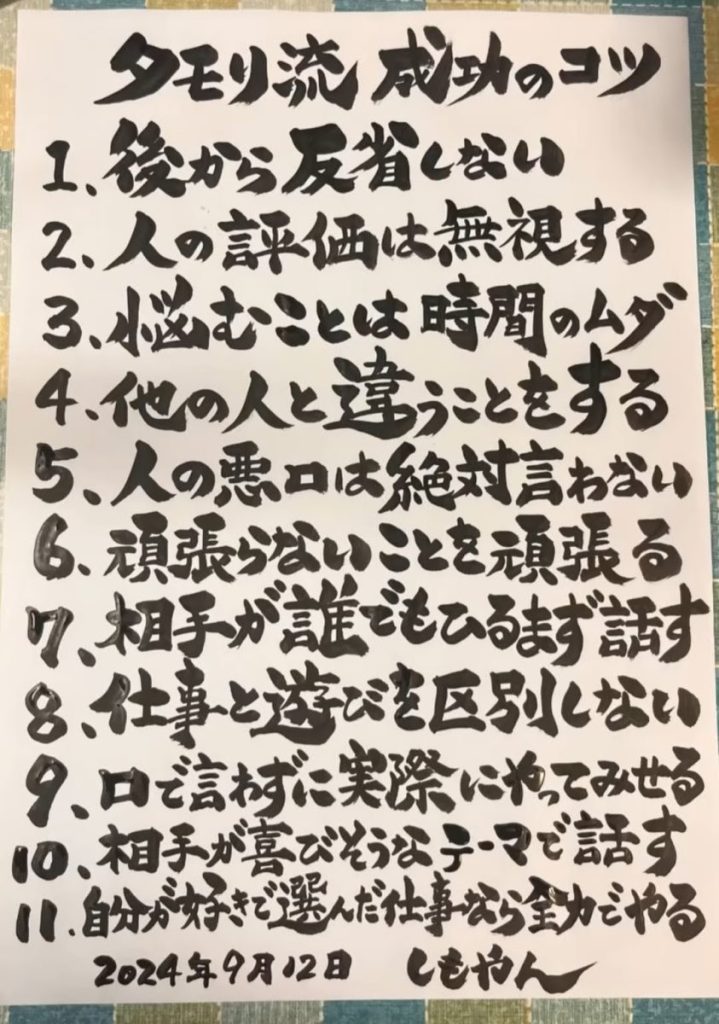 タモリ流 成功のコツ
1、後から反省しない
2、人の評価は無視する
3、悩むことは時間のムダ
4、他の人と違うことをする
5、人の悪口は絶対言わない
6、頑張らないことを頑張る
7、相手が誰でもひるまず話す
8、仕事と遊びを区別しない
9、口で言わずに実際にやってみせる
10、相手が喜びそうなテーマで話す
11.自分が好きで選んだ仕事なら全力でやる
2024年9月12日 しもやん